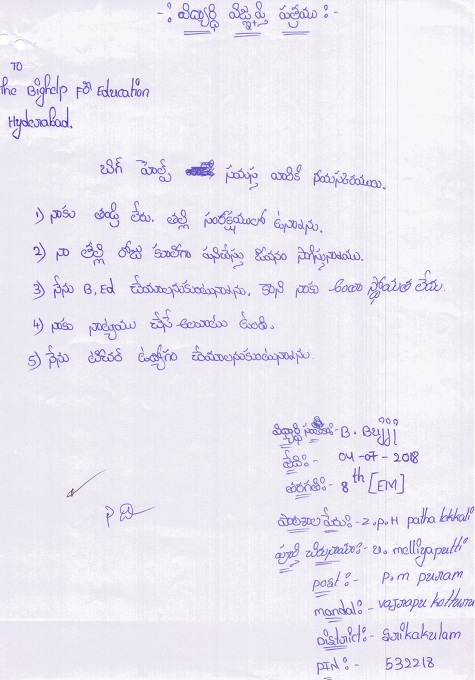 -: విద్యార్థి విజ్ఞప్తి పత్రము :-
TO
the Bighelp For Education
Hyderabad.
బిగ్ హెల్ప్ సమస్త వారికి నమస్కారములు.
1) నాకు తండ్రి లేరు. తల్లి సంరక్షములో ఉన్నాను.
2) నా తల్లి రోజు కూలీగా పనిచేస్తు జీవనం సాగిస్తున్నాము.
3) నేను B.Ed చేయాలనుకుంటున్నాను. కాని నాకు అంతా స్తోమత లేదు.
4) నాకు నాట్యము చేసే అలవాటు ఉంది.
5) నేను టీచర్ ఉద్యోగం చేయాలనుకుంటున్నాను
విద్యార్థి సంతకం:- B. Bujji
తేది:- 04-07-2018
తరగతి:- 8th [EM]
పాఠశాల పేరు:- Z.P.H patha tekkali
పూర్తి చిరునామా:- u. melliyaputti
post:- P.m puram
mandal:- vajrapu kotturu
District:- Srikakulam
PIN:- 532218